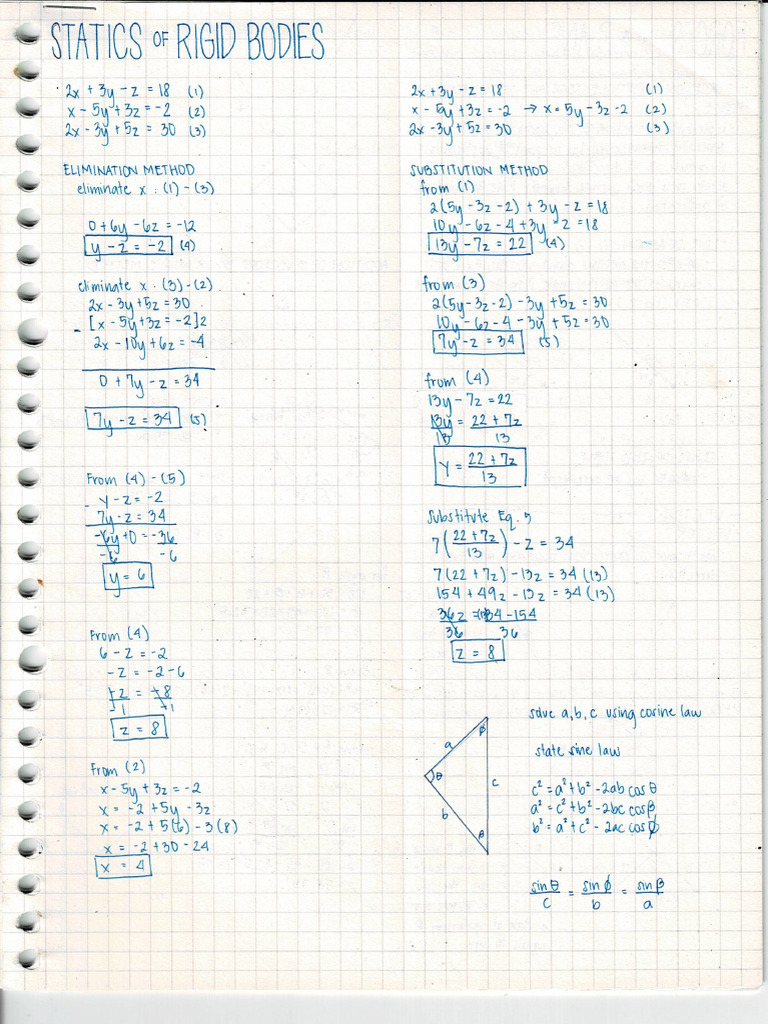 STATICS OF RIGID BODIES
2x + 3y - z = 18 (1)
x - 5y + 3z = -2 (2)
2x - 3y + 5z = 30 (3)
ELIMINATION METHOD
eliminate x : (1) - (3)
0 + 6y - 6z = -12
y - z = -2 (4)
eliminate x : (3) - (2)
2x - 3y + 5z = 30
- [x - 5y + 3z = -2] 2
2x - 10y + 6z = -4
0 + 7y - z = 34
7y - z = 34 (5)
From (4) - (5)
- y - z = -2
7y - z = 34
-6y + 0 = -36
-6 -6
y = 6
From (4)
6 - z = -2
-z = -2 - 6
-z = -8
-1 -1
z = 8
From (2)
x - 5y + 3z = -2
x = -2 + 5y - 3z
x = -2 + 5(6) - 3(8)
x = -2 + 30 - 24
x = 4
2x + 3y - z = 18 (1)
x - 5y + 3z = -2 → x = 5y - 3z - 2 (2)
2x - 3y + 5z = 30 (3)
SUBSTITUTION METHOD
from (1)
2(5y - 3z - 2) + 3y - z = 18
10y - 6z - 4 + 3y - z = 18
13y - 7z = 22 (4)
from (3)
2(5y - 3z - 2) - 3y + 5z = 30
10y - 6z - 4 - 3y + 5z = 30
7y - z = 34 (5)
from (4)
13y - 7z = 22
13y = 22 + 7z
13 13
y = 22 + 7z
13
Substitute Eq. 5
7(22 + 7z / 13) - z = 34
7(22 + 7z) - 13z = 34(13)
154 + 49z - 13z = 34(13)
36z = 34 - 154
36 36
z = 8
solve a, b, c using cosine law
state sine law
c² = a² + b² - 2ab cos θ
a² = c² + b² - 2bc cos β
b² = a² + c² - 2ac cos ϕ
a
b
c
ϕ
θ
sin θ / c = sin ϕ / b = sin β / a